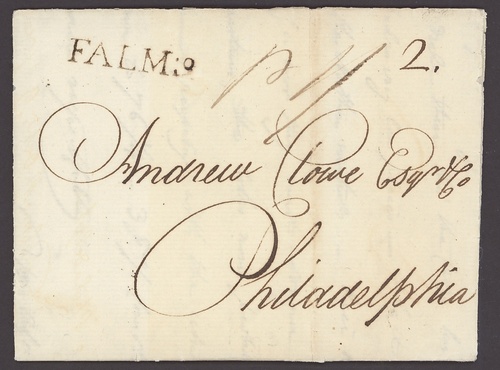 FALMo
2.
Andrew Clowe Esqr & Co
Philadelphia